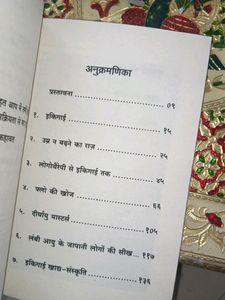 हत आप ने
कहावत
अनुक्रमणिका
प्रस्तावना ०९
१. इकिगाई १५
२. उम्र न बढ़ने का राज़ २५
३. लोगोथेरेपी से इकिगाई तक ४५
४. फ्लो की खोज ६६
५. दीर्घायु मास्टर्स १०५
६. लंबी आयु के जापानी लोगों की सीख ११७
७. इकिगाई खाद्य-संस्कृति १३६